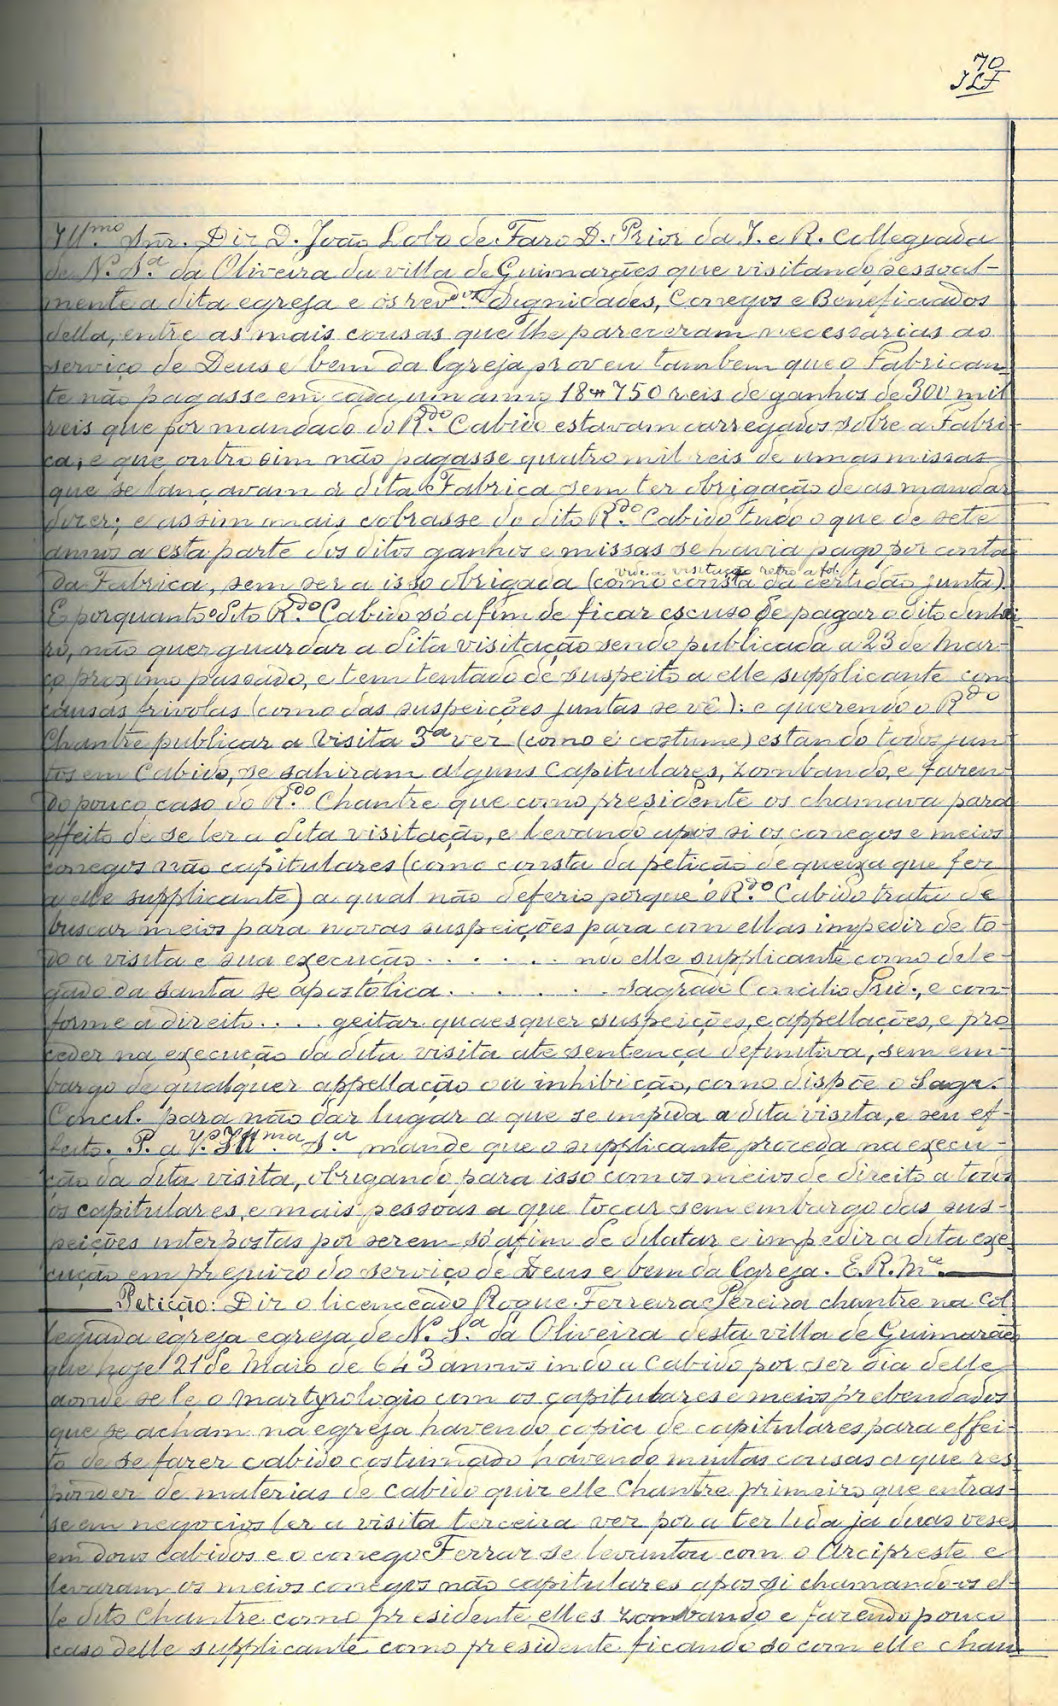 70
JLF
Ill.mo Snr. Diz D. João Lobo de Faro D. Prior da I. e R. Collegiada
de N. S.a da Oliveira da villa de Guimarães que visitando pessoal-
mente a dita egreja e os revd.os dignidades, Conegos e Beneficiados
della, entre as mais cousas que lhe pareceram necessarias ao
serviço de Deus e bem da Igreja proveu tambem que o Fabrican-
te não pagasse em cada um anno 18$750 reis de ganhos de 300 mil
reis que por mandado do R.do Cabido estavam carregados sobre a Fabri-
ca, e que outro sim não pagasse quatro mil reis de umas missas
que se lançavam á dita Fabrica sem ter obrigação de as mandar
dizer; e assim mais cobrasse do dito R.do Cabido tudo o que de sete
annos a esta parte dos ditos ganhos e missas se havia pago por conta
vide a visitação retro a fol.
da Fabrica, sem ser a isso obrigada (como consta da certidão junta).
E porquanto o dito R.do Cabido só afim de ficar escuso de pagar o dito dinhei-
ro, não quer guardar a dita visitação sendo publicada a 23 de Mar-
ço proximo passado, e tem tentado de suspeito a elle supplicante com
causas frivolas (como das suspeições juntas se vê): e querendo o R.do
Chantre publicar a Visita 3.a vez (como é costume) estando todos jun-
tos em Cabido, se sahiram alguns Capitulares, zombando, e fazen-
do pouco caso do R.do Chantre que como presidente os chamava para
effeito de se ler a dita visitação, e levando apos si os conegos e meios
conegos não capitulares (como consta da petição de queixa que fez
a elle supplicante) a qual não deferio porque o R.do Cabido trata de
buscar meios para novas suspeições para com ellas impedir de to-
do a visita e sua execução . . . . . . nde elle supplicante como dele-
gado da santa se apostolica . . . . . . . sagrado Concilio Trid., e con-
forme a direito . . . . geitar quaesquer suspeições, e appellações, e pro-
ceder na execução da dita visita ate sentença definitiva, sem em-
bargo de qualquer appellação ou inhibição, como dispõe o Sagr.
Concil. para não dar lugar a que se impida a dita visita, e seu ef-
feito. P. a V.a Ill.ma S.a mande que o supplicante proceda na execu-
ção da dita visita, obrigando para isso com os meios de direito a todos
os capitulares, e mais pessoas a que tocar sem embargo das sus-
peições interpostas por serem só afim de dilatar e impedir a dita exe-
cução em prejuizo do serviço de Deus e bem da Igreja. E. R. M.ce
Petição: Diz o licenceado Roque Ferreira Pereira chantre na Col-
legiada egreja egreja de N. S.a da Oliveira desta villa de Guimarães
que hoje 21 de Maio de 643 annos indo a Cabido por ser dia delle
aonde se le o Martyrologio com os capitulares e meios prebendados
que se acham na egreja havendo copia de capitulares para effei-
to de se fazer cabido costumado havendo muitas cousas a que res-
ponder de materias de Cabido quiz elle Chantre primeiro que entras-
se em negocios ler a visita terceira vez por a ter lida já duas vezes
em dous cabidos e o conego Ferraz se levantou com o Arcipreste e
levaram os meios conegos não capitulares apos si chamando-os el-
le dito Chantre como presidente elles zombando e fazendo pouco
caso delle supplicante como presidente ficando só com elle chan-